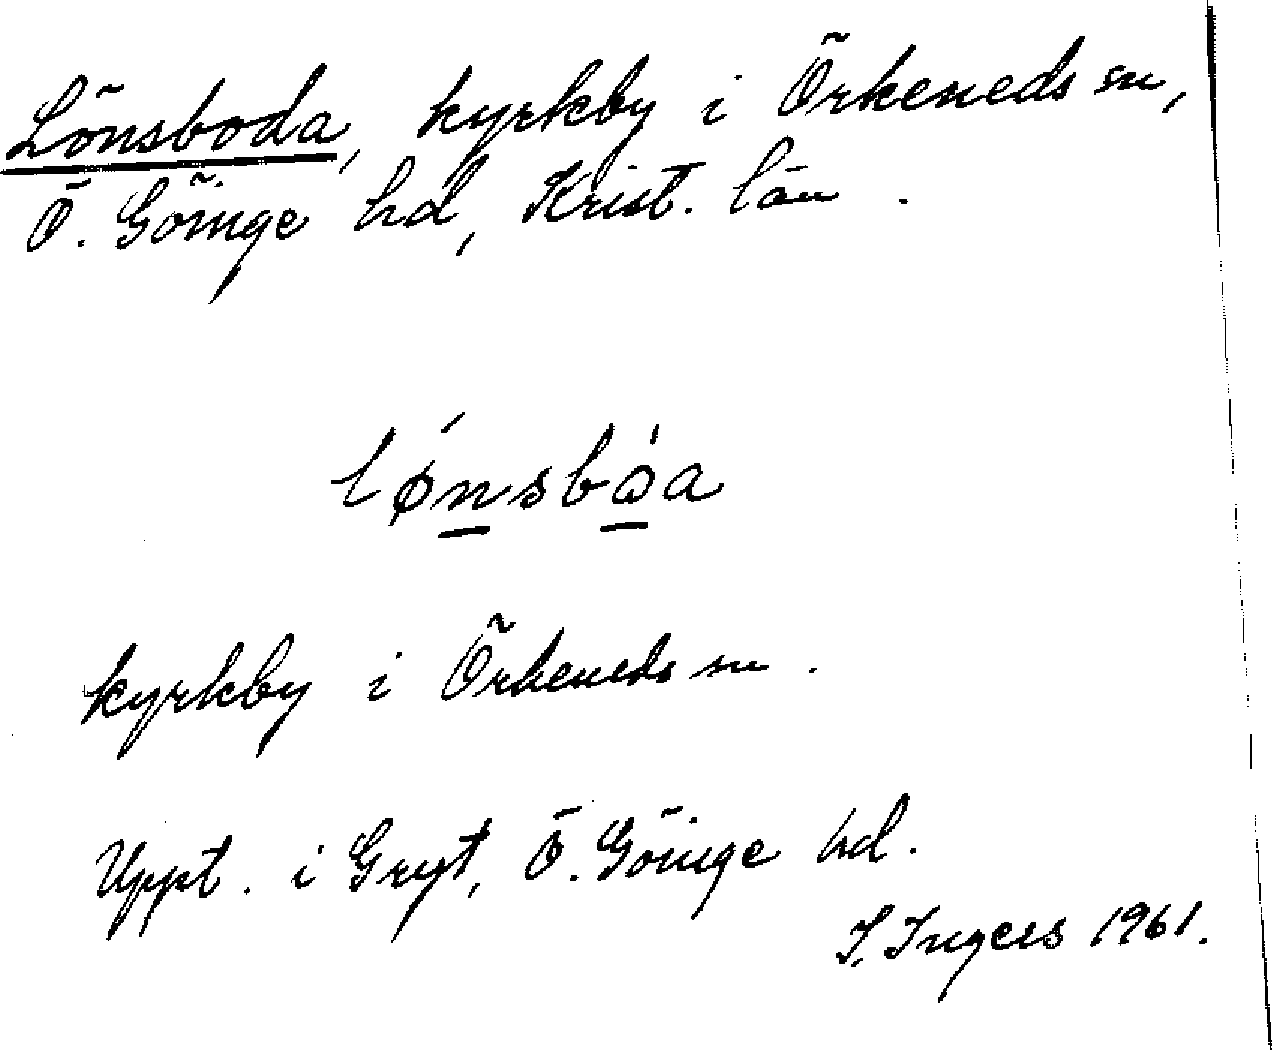 Lönsboda, kyrkby i Örkeneds sn,
Ö. Göinge hd, Krist. län.
lǿnsbòa
kyrkby i Örkeneds sn.
Uppt. i Gryt, Ö. Göinge hd.
I. Ingers 1961.